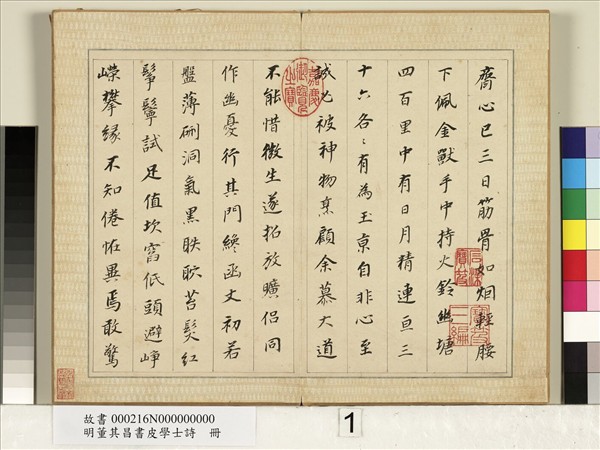 齋心已三日筋骨如烟輕腰
下佩金獸手中持火鈴幽塘
四百里中有日月精連亘三
十六各〻有為玉京自非心至
誠必被神物烹顧余慕大道
不能惜微生遂招放曠侶同
作幽憂行其門纔函丈初若
盤薄硎洞氣黑眣苔髮紅
鬇鬡試足值坎窞低頭避崢
嶸攀緣不知倦怪異焉敢驚
嘉慶御覽之寶
石渠寶笈
故書 000216N000000000
明董其昌書皮學士詩 冊
1